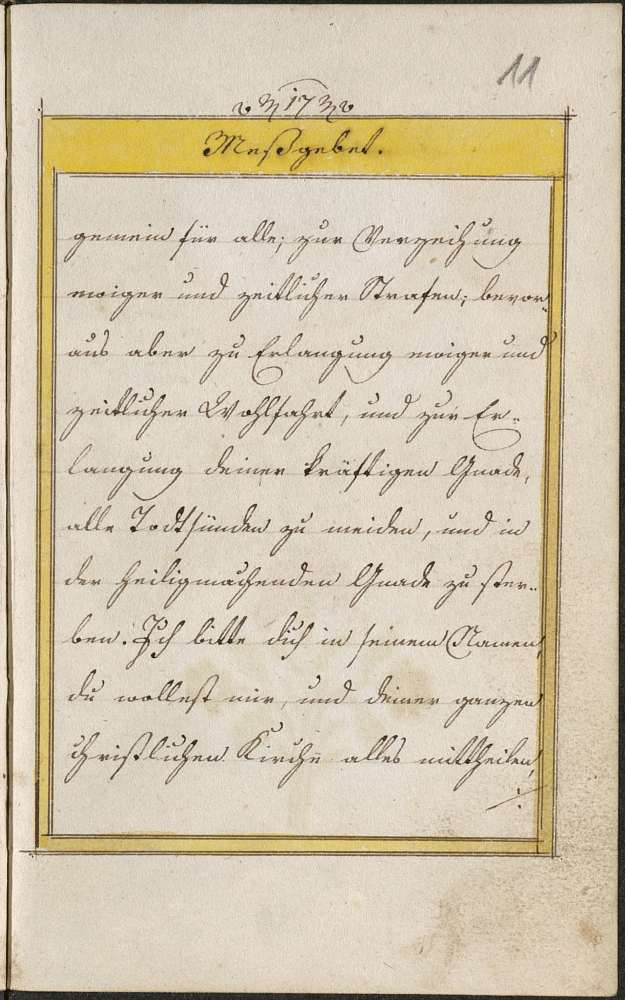 11
17
Meßgebet.
gemein für alle; zur Verzeihung
ewiger und zeitlicher Strafen; bevor
aus aber zu Erlangung ewiger und
zeitlicher Wohlfahrt, und zur Er-
langung deiner kräftigen Gnade,
alle Todtsünden zu meiden, und in
der heiligmachenden Gnade zu ster-
ben. Ich bitte dich in seinem Namen,
du wollest mir, und deiner ganzen
christlichen Kirche alles mittheilen,